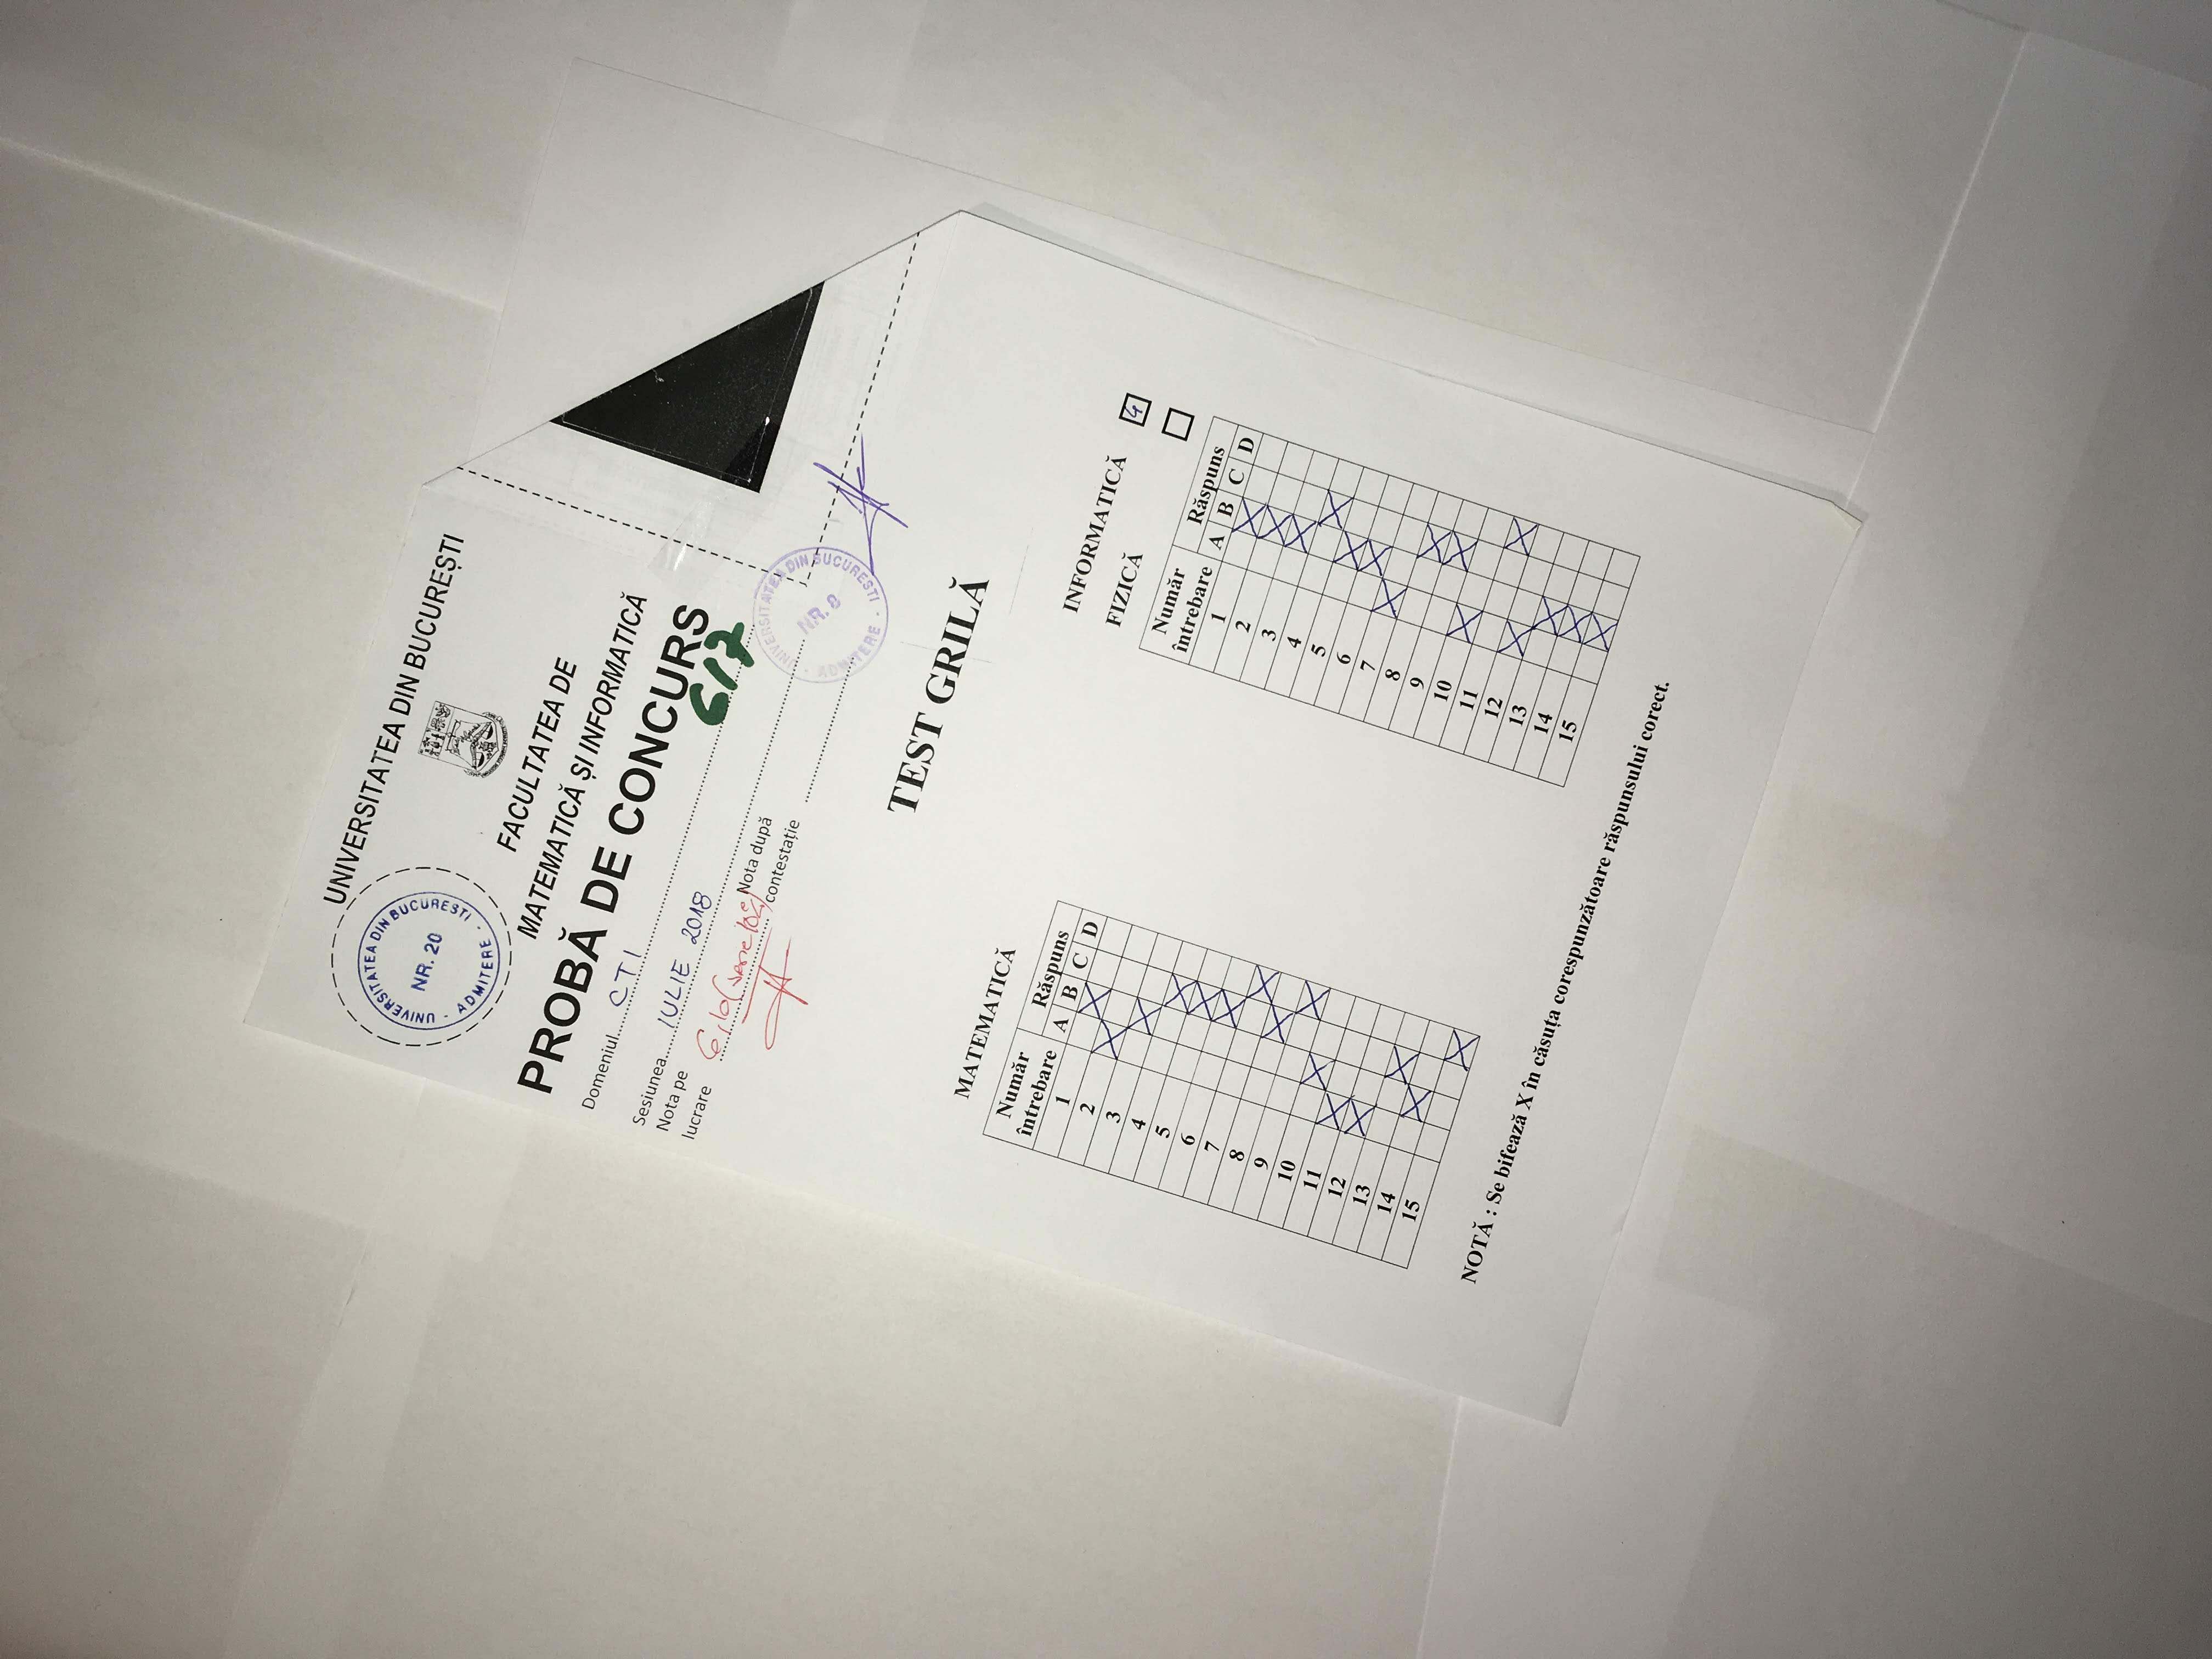 UNIVERSITATEA DIN BUCUREȘTI
UNIVERSITATEA DIN BUCUREȘTI · ADMITERE ·
NR. 20
FACULTATEA DE
MATEMATICĂ ȘI INFORMATICĂ
PROBĂ DE CONCURS
Domeniul CTI
617
Sesiunea IULIE 2018
Nota pe
lucrare 6,10
Nota după
contestație
UNIVERSITATEA DIN BUCURESTI · ADMITERE ·
NR. 8
TEST GRILĂ
MATEMATICĂ
Număr
întrebare
Răspuns
A B C D
1 X
2 X
3 X
4 X
5 X
6 X
7 X
8 X
9 X
10 X
11 X
12 X
13 X
14 X
15 X
INFORMATICĂ 4
FIZICĂ
Număr
întrebare
Răspuns
A B C D
1 X
2 X
3 X
4 X
5 X
6 X
7 X
8 X
9 X
10 X
11 X
12 X
13 X
14 X
15 X
NOTĂ : Se bifează X în căsuța corespunzătoare răspunsului corect.